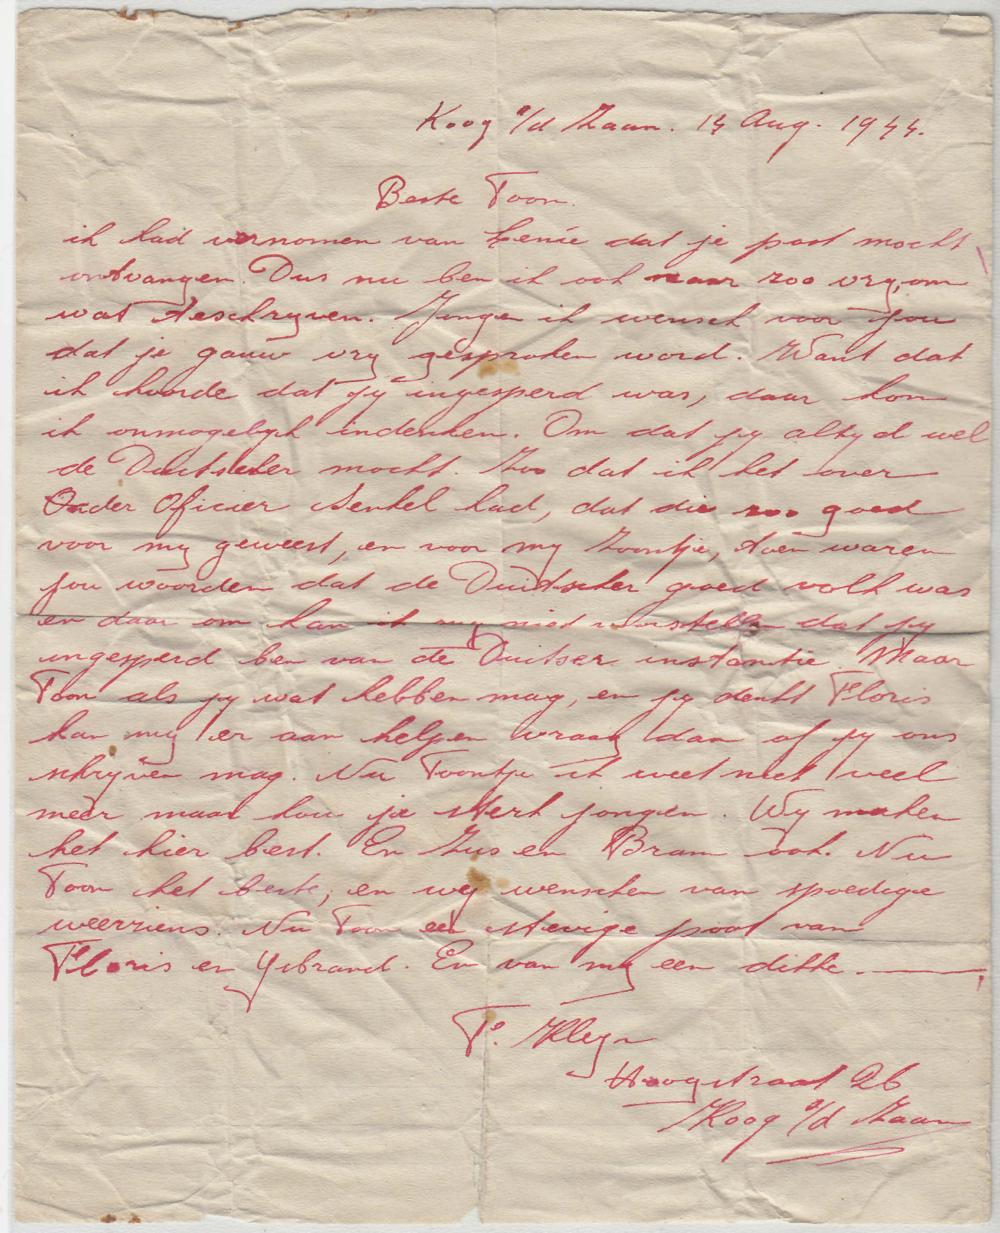 Koog a/d Zaan. 14 Aug. 1944.
Beste Toon.
ik had vernomen van Lenie dat je post mocht
ontvangen. Dus nu ben ik ook maar zoo vry, om
wat te schryven. Jongen ik wensch voor jou
dat je gauw vry gesproken word. Want dat
ik hoorde dat jy ingesperd was, daar kon
ik onmogelyk indenken. Om dat jy altyd wel
de Duitscher mocht. Zoo dat ik het over
Onder Oficier had, dat die zoo goed
voor my geweest, en voor my Zoontje, toen waren
jou woorden dat de Duitscher goed volk was
en daar om kan ik my niet voorstellen dat jy
ingesperd ben van de Duitser instantie. Maar
Toon als jy wat hebben mag, en jy denkt Floris
kan my er aan helpen vraag dan of jy ons
schryven mag. Nu Toontje ik weet niet veel
meer maar hou je sterk jongen. Wy maken
het hier best. En Zus en Bram ook. Nu
Toon het beste, en wy wenschen van spoedige
weerziens. Nu Toon een stevige poot van
Floris en Ysbrand. En van my een dikke.
F. Kleyn
Hoogstraat 26
Koog a/d Zaan